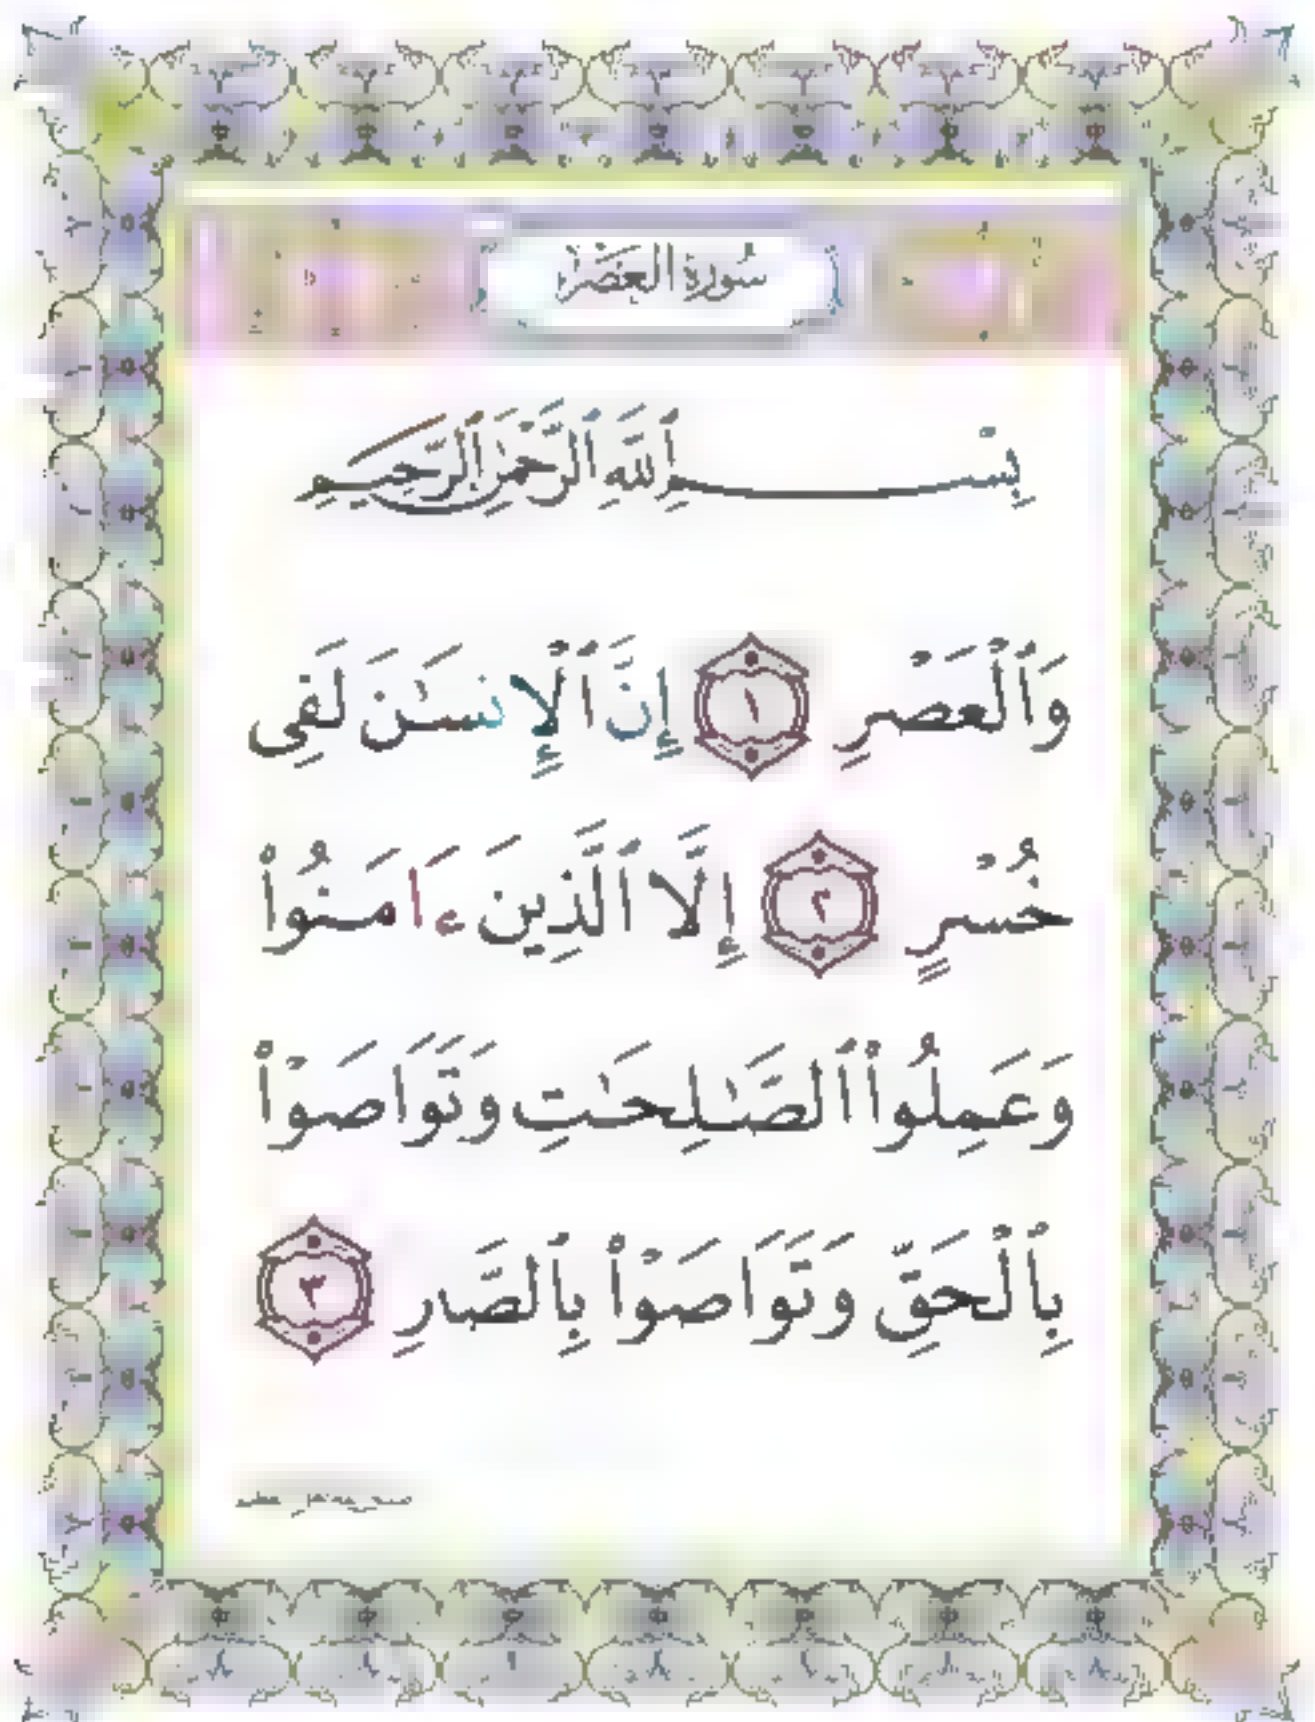 سُورَةُ العَصْرِ
بِسْمِ ٱللَّهِ ٱلرَّحْمَٰنِ ٱلرَّحِيمِ
وَٱلْعَصْرِ ١ إِنَّ ٱلْإِنسَٰنَ لَفِى
خُسْرٍ ٢ إِلَّا ٱلَّذِينَ ءَامَنُوا۟
وَعَمِلُوا۟ ٱلصَّٰلِحَٰتِ وَتَوَاصَوْا۟
بِٱلْحَقِّ وَتَوَاصَوْا۟ ٣